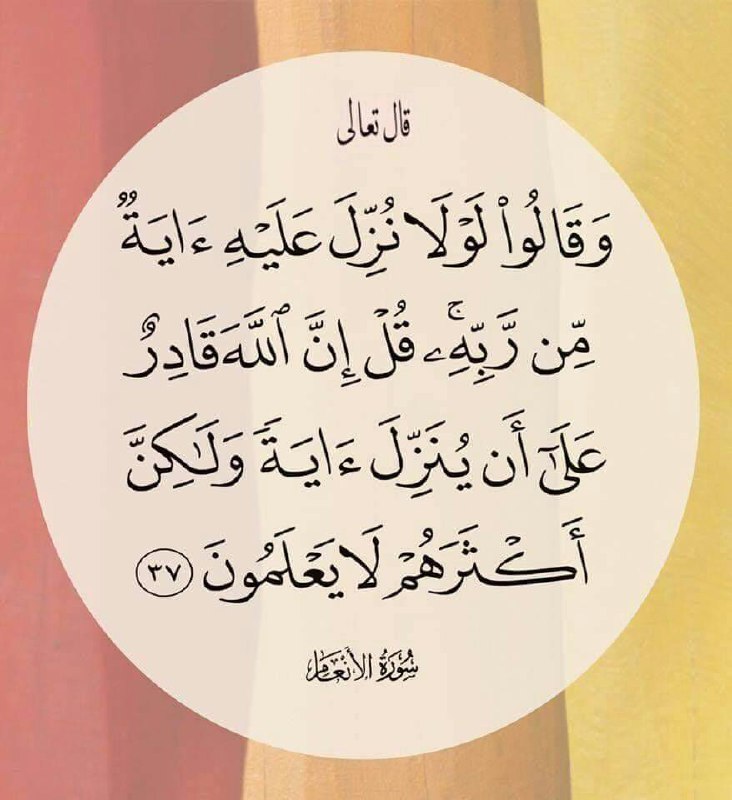 قال تعالى
وَقَالُوا۟ لَوْلَا نُزِّلَ عَلَيْهِ ءَايَةٌۭ
مِّن رَّبِّهِۦ ۚ قُلْ إِنَّ ٱللَّهَ قَادِرٌ
عَلَىٰٓ أَن يُنَزِّلَ ءَايَةًۭ وَلَـٰكِنَّ
أَكْثَرَهُمْ لَا يَعْلَمُونَ ٣٧
سُورَةُ الأَنْعَامِ